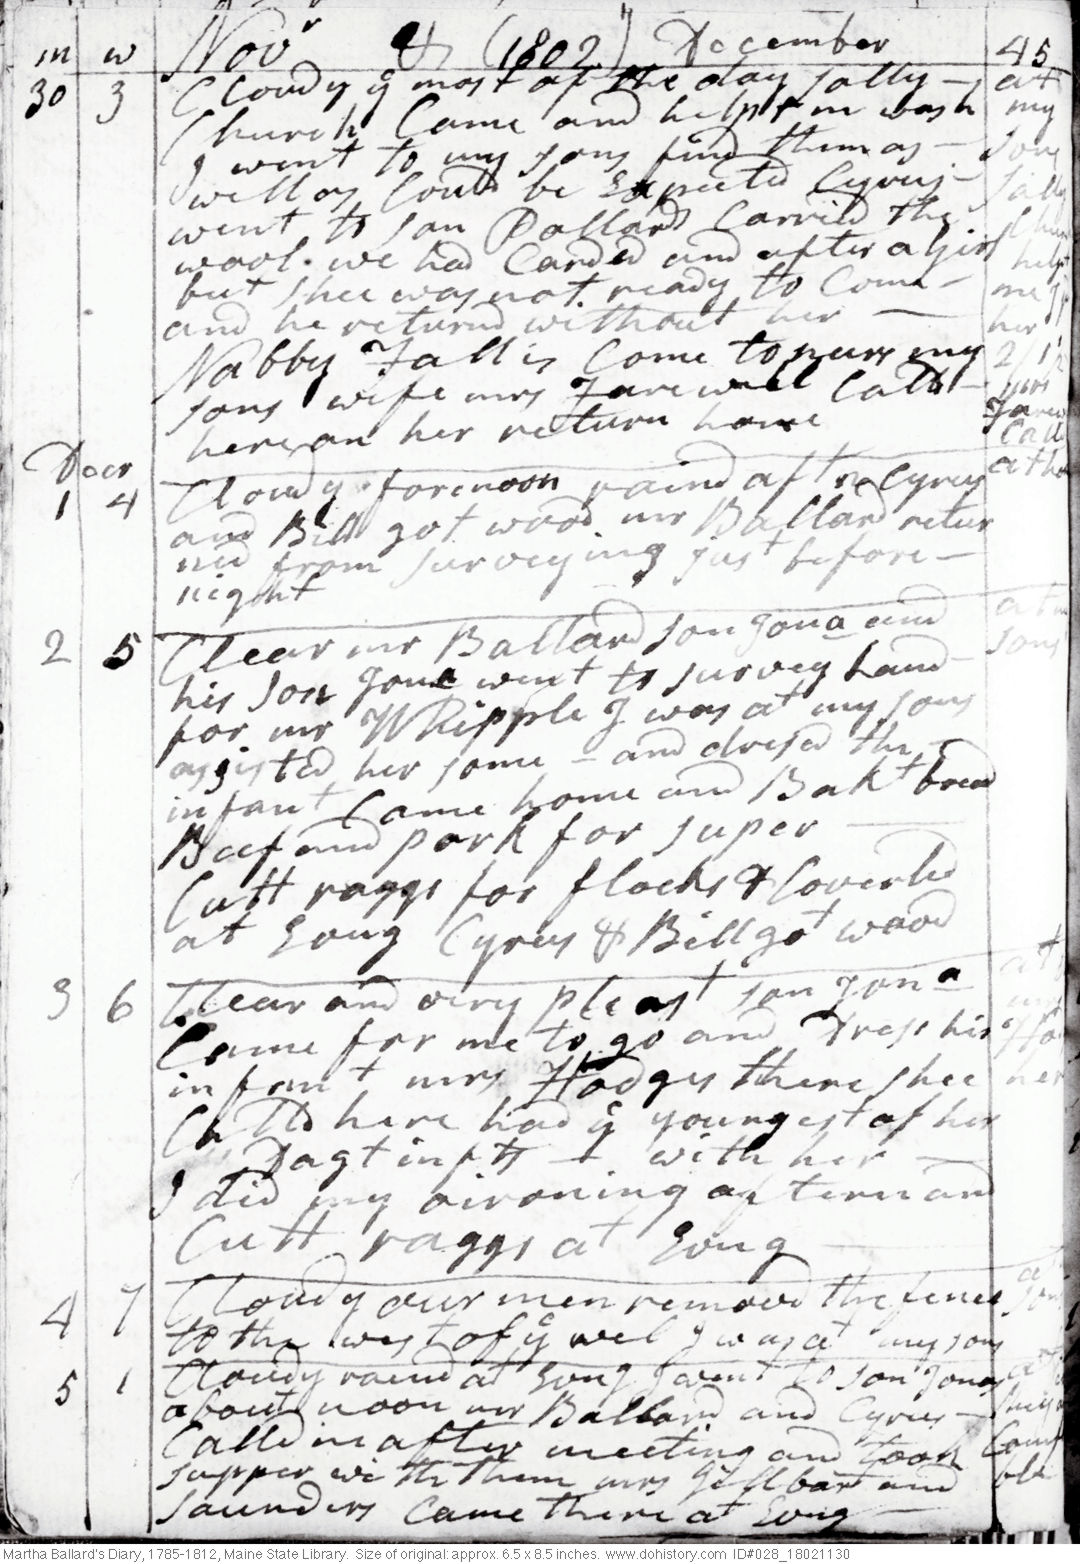 m w Novr & (1802) December 45
30 3 Cloudy ye most of the day Sally
Church Came and helpt m wash
I went to my sons find them as
well as Could be Expected Cyrus
went to son Pollards Carried the
wool we had Carded and after a girl
but shee was not ready to Come
and he returnd without her
Nabby Fall is Come to nurs my
sons wife mrs Farewell Calld
here on her return home
at
my
sons
Sally
help
me
her
2/
mrs
Calld
at
Decr
1 4 Cloudy forenoon raind aftn Cyrus
and Bill got wood mr Ballard retur
nid from surveying just before
night
2 5 Clear mr Ballard son Jona and
his son Jona went to survey Land
for mr Whipple I was at my sons
assisted her some and dresed the
infant Came home and Bakt bread
Beef and pork for super
Cutt raggs for flocks & Coverled
at Evng Cyrus & Bill got wood
at
sons
3 6 Clear and very pleast son Jona
Came for me to go and Dress his
infant mrs Hodges there shee
Calld here had ye youngest of her
Dagt infts with her
I did my aironing aftern and
Cutt raggs at Evng
at
her
4 7 Cloudy our men removd the fence
to the west of ye wel I was at my sons
5 1 Cloudy raind at Evng I went to son Jonas
about noon mr Ballard and Cyrus
Calld in after meeting and took
supper with them mrs Gillbar and
Saunders Came there at Evng
Martha Ballard's Diary, 1785-1812, Maine State Library. Size of original: approx. 6.5 x 8.5 inches. www.dohistory.com ID#028_18021130